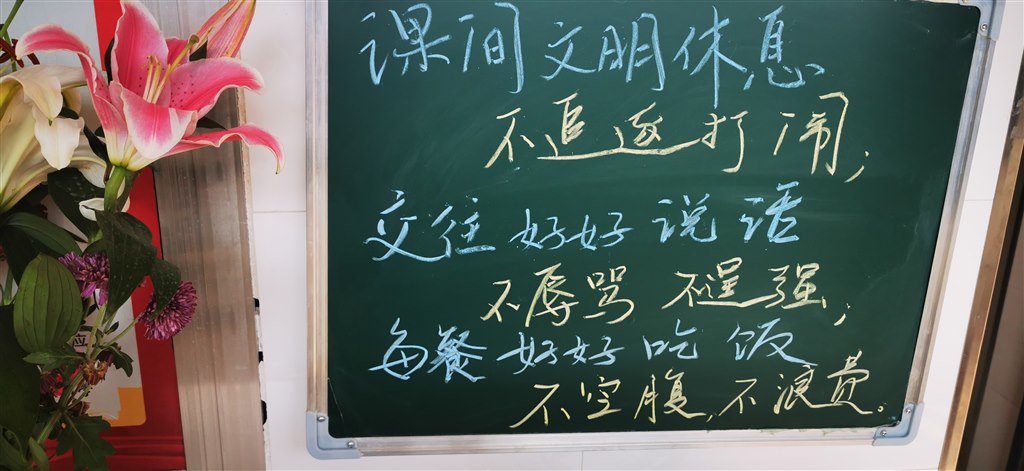 课间文明休息
不追逐打闹；
交往好好说话
不辱骂 不逞强；
每餐好好吃饭
不空腹，不浪费。